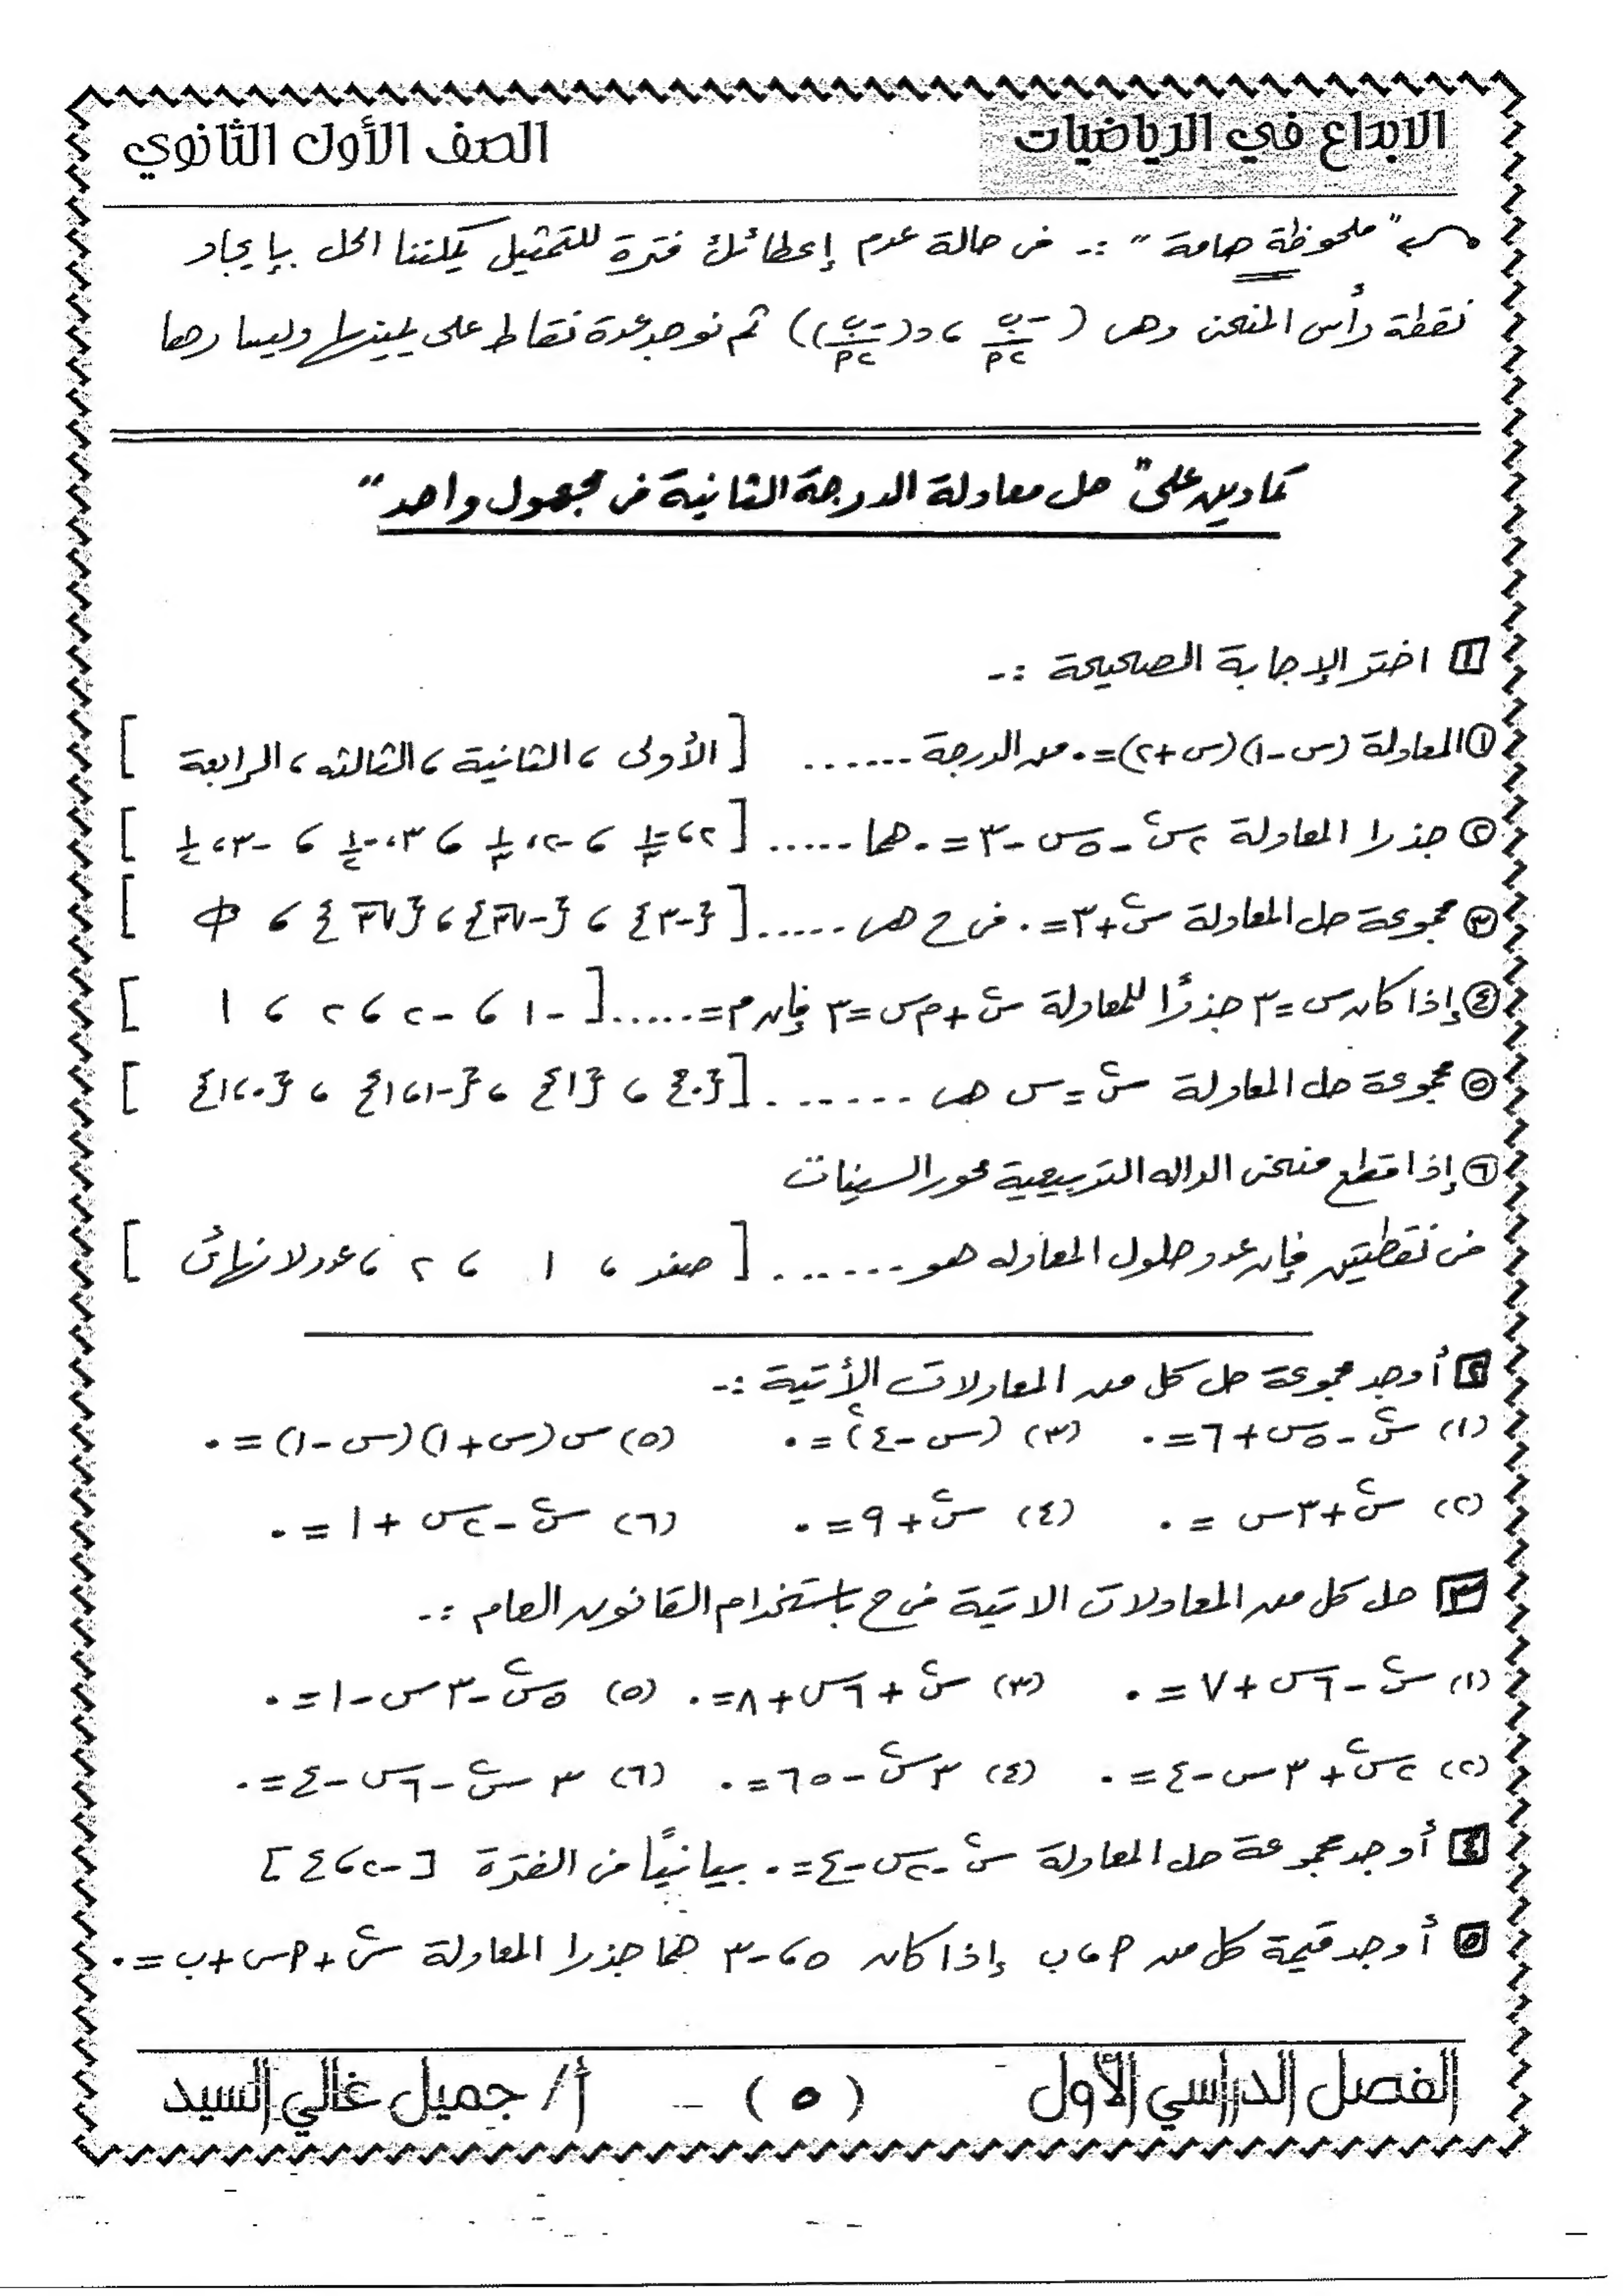 الابداع في الرياضيات
الصف الأول الثانوي
"ملحوظة هامة" :- فى حالة عدم إعطائك فترة للتمثيل يمكننا الحل بإيجاد
نقطة رأس المنحنى وهى (-ب/٢أ ، د(-ب/٢أ)) ثم نوجد عدة نقاط على يمينها ويسارها
تمارين على "حل معادلة الدرجة الثانية فى مجهول واحد"
١ اختر الإجابة الصحيحة :-
١ المعادلة (س-١)(س+٢)=٠ من الدرجة ...... [الأولى ، الثانية ، الثالثه ، الرابعة]
٢ جذرا المعادلة ٢س²-٥س-٣=٠ هما ..... [٢، ١/٣ ، -٢، ١/٣ ، ٣، -١/٢ ، -٣، ١/٢]
٣ مجموعة حل المعادلة س²+٣=٠ فى ح هى ..... [{-٣} ، {-√٣} ، {√٣} ، Φ]
٤ إذا كان س=٣ جذرًا للمعادلة س²+م س=٣ فإن م=..... [-١ ، -٢ ، ٢ ، ١]
٥ مجموعة حل المعادلة س²=س هى ....... [{٠} ، {١} ، {-١،١} ، {٠،١}]
٦ إذا قطع منحنى الداله التربيعية محور السينات
فى نقطتين فإن عدد حلول المعادله هو ....... [صفر ، ١ ، ٢ ، عدد لا نهائى]
٢ أوجد مجموعة حل كل من المعادلات الأتية :-
(١) س²-٥س+٦=٠ (٣) (س-٤)²=٠ (٥) س(س+١)(س-١)=٠
(٢) س²+٣س=٠ (٤) س²+٩=٠ (٦) س²-٢س+١=٠
٣ حل كل من المعادلات الاتية فى ح باستخدام القانون العام :-
(١) س²-٦س+٧=٠ (٣) س²+٦س+٨=٠ (٥) ٥س²-٣س-١=٠
(٢) ٢س²+٣س-٤=٠ (٤) ٣س²-٦٥=٠ (٦) ٣س²-٦س-٤=٠
٤ أوجد مجموعة حل المعادلة س²-٢س-٤=٠ بيانيًا فى الفترة [-٢،٤]
٥ أوجد قيمة كل من أ،ب إذا كان ٥،-٣ هما جذرا المعادلة س²+أس+ب=٠
الفصل الدراسي الأول
(٥)
أ/ جميل غالي السيد